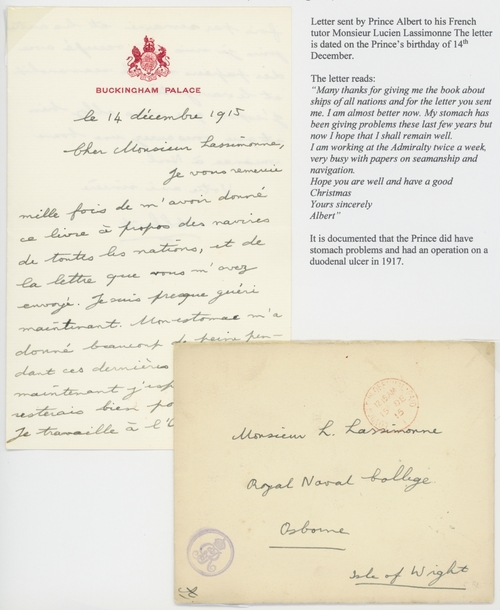 BUCKINGHAM PALACE
le 14 décembre 1915
Cher Monsieur Lassimonne,
Je vous remercie
mille fois de m'avoir donné
ce livre à propos des navires
de toutes les nations, et de
la lettre que vous m'avez
envoyé. Je suis presque guéri
maintenant. Mon estomac m'a
donné beaucoup de peine pen-
dant ces dernières
maintenant j'esp
resterais bien po
Je travaille à l'
Letter sent by Prince Albert to his French
tutor Monsieur Lucien Lassimonne The letter
is dated on the Prince's birthday of 14th
December.
The letter reads:
"Many thanks for giving me the book about
ships of all nations and for the letter you sent
me. I am almost better now. My stomach has
been giving problems these last few years but
now I hope that I shall remain well.
I am working at the Admiralty twice a week,
very busy with papers on seamanship and
navigation.
Hope you are well and have a good
Christmas
Yours sincerely
Albert"
It is documented that the Prince did have
stomach problems and had an operation on a
duodenal ulcer in 1917.
Monsieur L. Lassimonne
Royal Naval College
Osborne
Isle of Wight